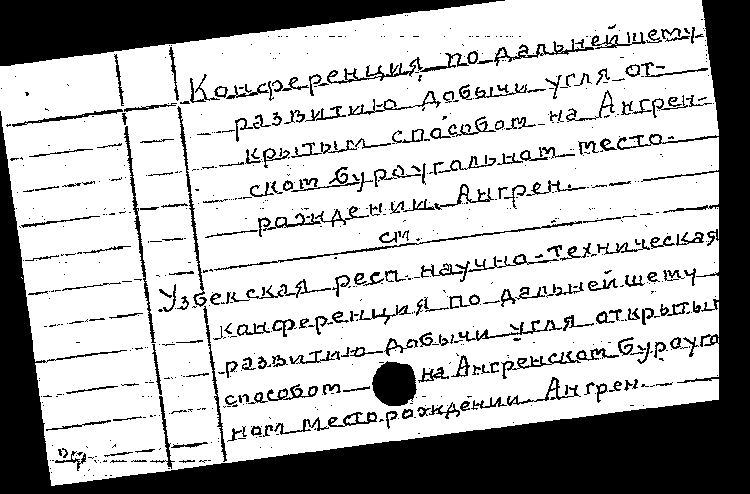 Конференция по дальнейшему
развитию добычи угля от-
крытым способом на Ангрен-
ском буроугольном место-
рождении. Ангрен.
см.
Узбекская респ. научно-техническая
конференция по дальнейшему
развитию добычи угля открытым
способом на Ангренском буроуго
ном месторождении. Ангрен.